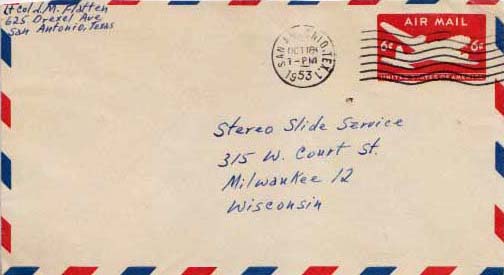 Lt Col L.M. Flatten
625 Drexel Ave
San Antonio, Texas
SAN ANTONIO, TEX. 1
OCT 18
1-PM
1953
AIR MAIL
6¢ 6¢
UNITED STATES OF AMERICA
Stereo Slide Service
315 W. Court St.
Milwaukee 12
Wisconsin